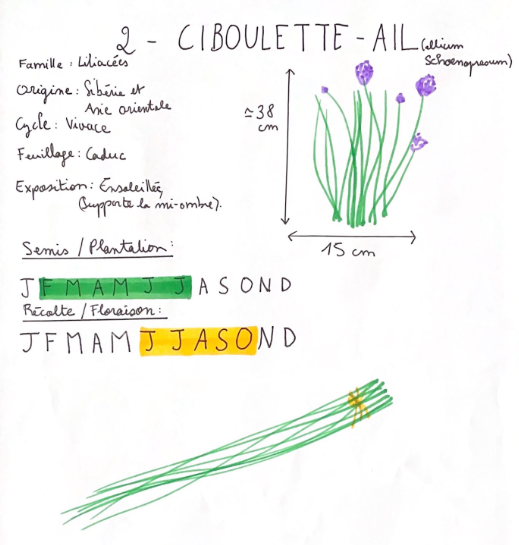 2 - CIBOULETTE - AIL (allium
schoenoprasum)
Famille : Liliacées
Origine : Sibérie et
Asie orientale
Cycle : Vivace
Feuillage : Caduc
Exposition : Ensoleillée,
(supporte la mi-ombre).
≃ 38
cm
15 cm
Semis / Plantation :
J F M A M J J A S O N D
Récolte / Floraison :
J F M A M J J A S O N D